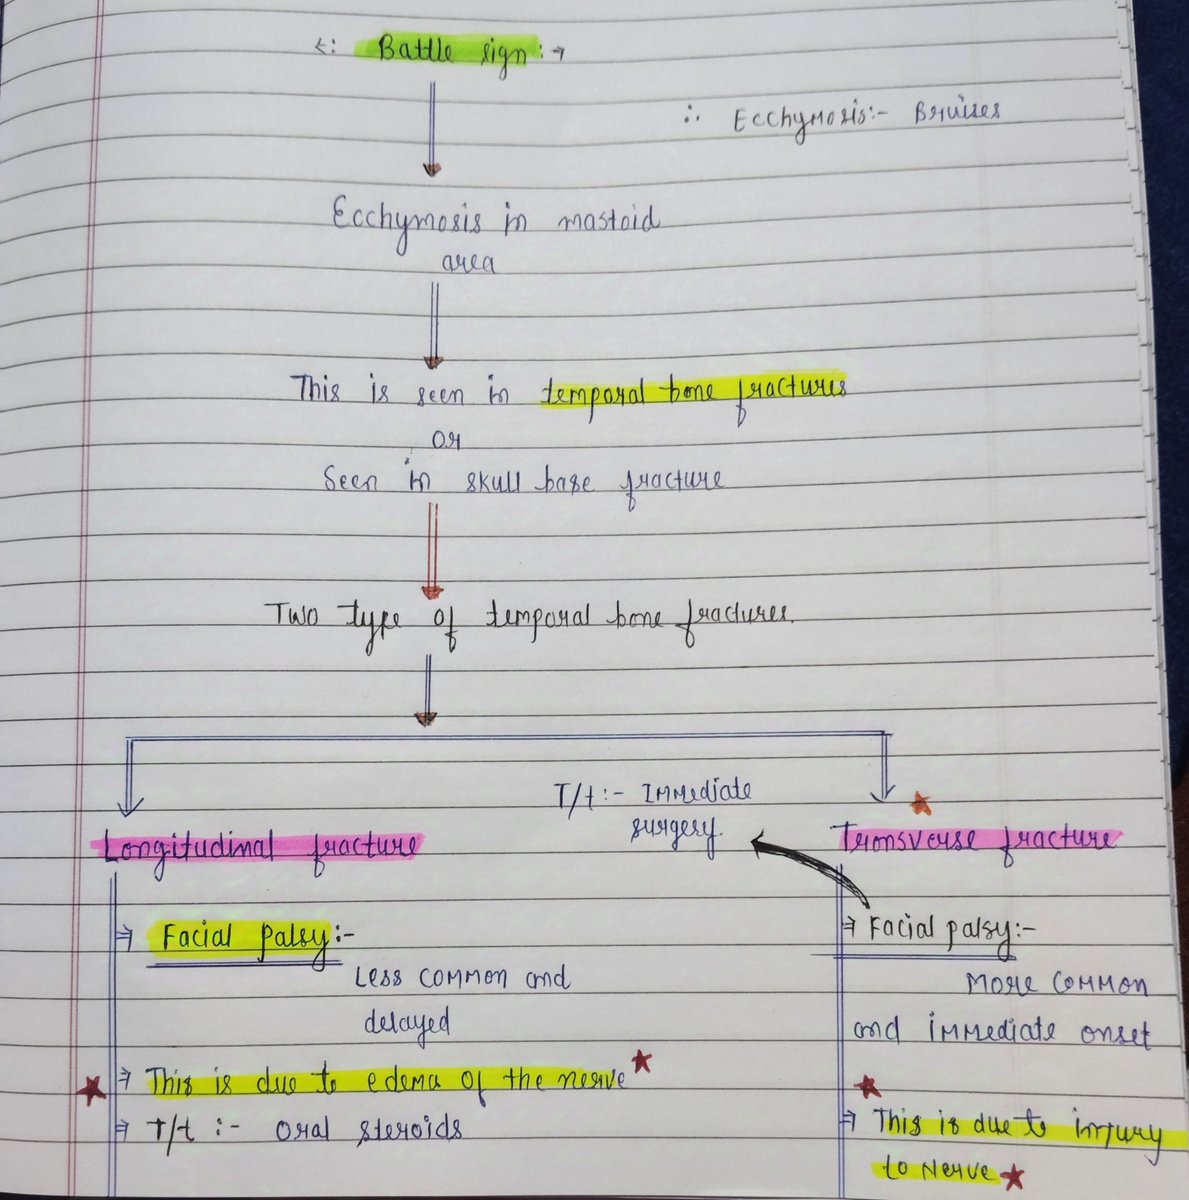 <: Battle sign :→
∴ Ecchymosis:- Bruises
Ecchymosis in mastoid
area
This is seen in temporal bone fractures
or
Seen in skull base fracture
Two type of temporal bone fractures.
T/t :- Immediate
surgery.
Longitudinal fracture
Transverse fracture
⇒ Facial palsy :-
Less common and
delayed
⇒ This is due to edema of the nerve
⇒ T/t :- oral steroids
⇒ Facial palsy:-
More common
and immediate onset
⇒ This is due to injury
to Nerve